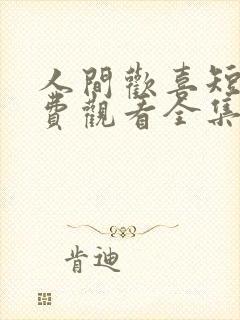 人間歡喜短
費觀看全集
肯迪